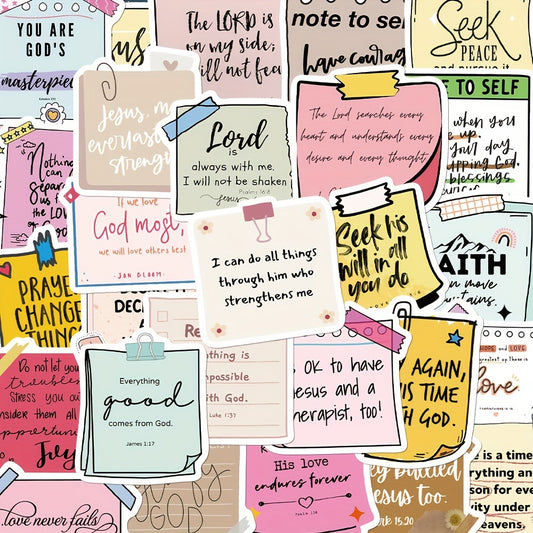 YOU ARE
GOD'S
masterpiece
The LORD is
on my side;
I will not fear
note to self
have courage
Seek
PEACE
and pursue it
Jesus, my
everlasting
strength
Lord
is
always with me.
I will not be shaken
Psalms 16:8
Jesus
The Lord searches every
heart and understands every
desire and every thought
NOTE TO SELF
when you
up.
your day
God.
blessings
Nothing
can
Separate
us from
the LOVE
If we love
God most,
we will love others best
-JON BLOOM-
I can do all things
through him who
strengthens me
Seek his
will in all
you do
FAITH
can move
mountains.
PRAYER
CHANGES
THINGS
Do not let your
troubles
stress you out
consider them all
opportunities
Joy
Everything
good
comes from God.
James 1:17
Nothing is
impossible
with God.
Luke 1:37
OK to have
Jesus and a
therapist, too!
AGAIN,
THIS TIME
WITH GOD.
HOPE and LOVE
greatest of these is
love
love never fails
GOD
His love
endures forever
Psalm 136
They bullied
Jesus too.
Mark 15:20
is a time
everything an
season for eve
activity under
heavens.